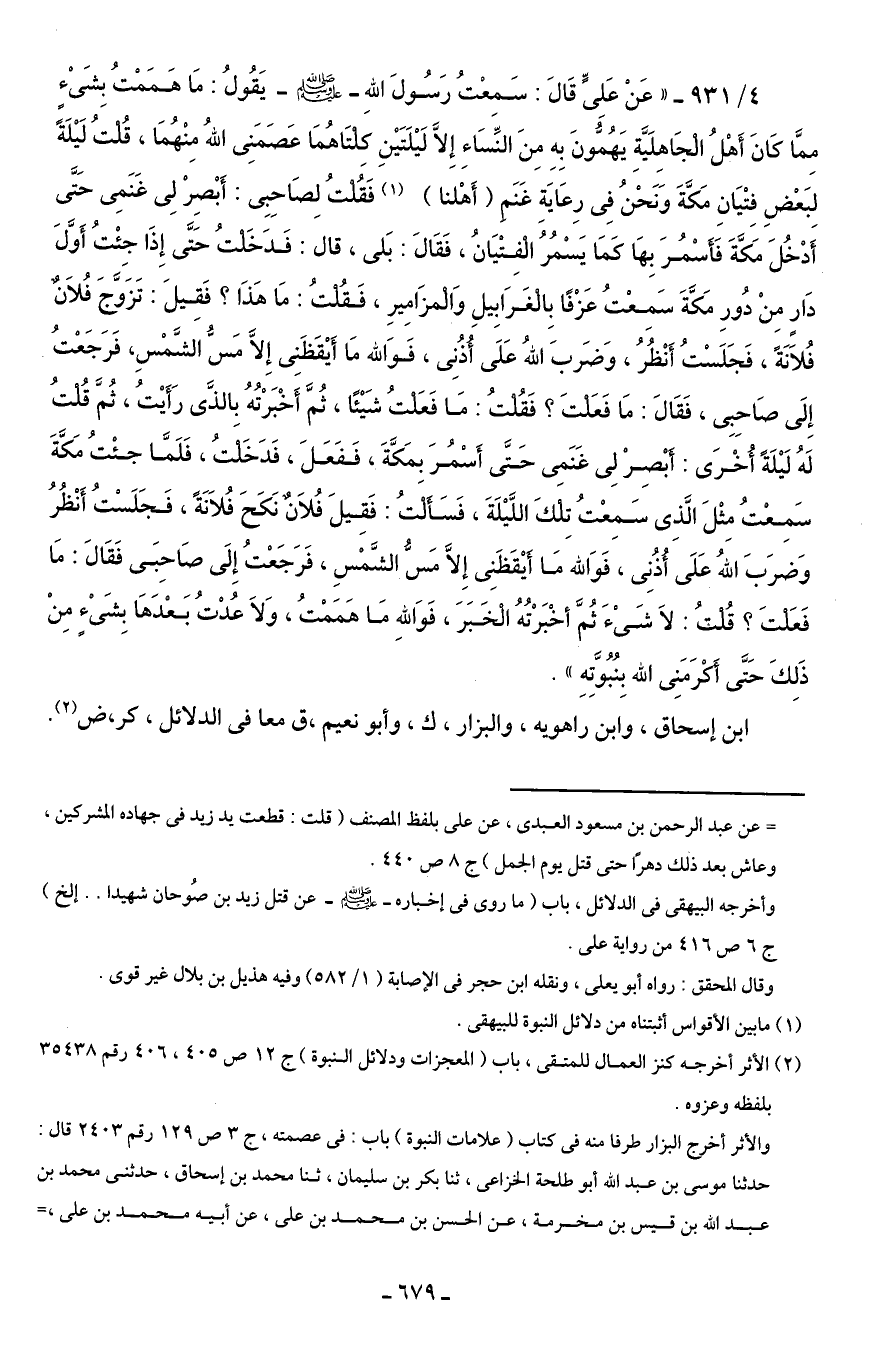 ٤/ ٩٣١ ـ « عَنْ عَلىٍّ قَالَ : سَـمِعْتُ رَسُـولَ الله ـ ﷺ ـ يَقُولُ : مَا هَـمَمْتُ بِشَىْءٍ
مِمَّا كَانَ أَهْلُ الْجَاهِلِيَّةِ يَهُمُّونَ بِهِ مِنَ النِّسَاءِ إِلاَّ لَيْلَتَيْنِ كِلْتَاهُمَا عَصَمَنِى اللهُ مِنْهُمَا ، قُلْتُ لَيْلَةً
لِبَعْضِ فِتْيَانِ مَكَّةَ وَنَحْنُ فِى رِعَايَةِ غَنَمِ ( أَهْلنا ) (١) فَقُلْتُ لِصَاحِبِى : أَبْصِرْ لِى غَنَمِى حَتَّى
أَدْخُلَ مَكَّةَ فَأَسْمُـرَ بِهَا كَمَا يَسْمُرُ الْفِـتْيَانُ ، فَقَالَ : بَلى ، قال : فَـدَخَلْتُ حَتَّى إِذَا جِئْتُ أَوَّلَ
دَارٍ مِنْ دُورِ مَكَّةَ سَمِـعْتُ عَزْفًا بِالْغَـرَابِيلِ وَالْمزَامِيرِ ، فَـقُلْتُ : مَا هَذَا ؟ فَقِـيلَ : تَزَوَّجَ فُلاَنٌ
فُلاَنَةً ، فَجَلَسْتُ أَنْظُرُ ، وَضَرَبَ اللهُ عَلَى أُذُنِى ، فَـوَالله مَا أَيْقَظَنِى إِلاَّ مَسُّ الشَّمْسِ، فَرَجَعْتُ
إِلَى صَاحِبِى ، فَقَالَ : مَا فَعَلْتَ ؟ فَقُلْتُ : مَـا فَعَلْتُ شَيْئًا ، ثُمَّ أَخْبَرْتُهُ بِالَّذى رَأَيْتُ ، ثُمَّ قُلْتُ
لَهُ لَيْلَةً أُخْـرَى : أَبْصِـرْ لِى غَنَمِى حَـتَّى أَسْمُـرَ بِمَكَّةَ ، فَـفَعَلَ ، فَدَخَلْتُ ، فَلَمَّـا جِـئْتُ مَكَّةَ
سَمِـعْتُ مِثْلَ الَّذِى سَـمِعْتُ تِلْكَ اللَّيْلَةَ ، فَسَـأَلْتُ : فَقِيلَ فُلاَنٌ نَكَحَ فُلاَنَةً ، فَـجَلَسْتُ أَنْظُرُ
وَضَرَبَ اللهُ عَلَى أُذُنِى ، فَوَالله مَـا أَيْقَظَنِى إِلاَّ مَسُّ الشَّمْسِ ، فَرَجَعْتُ إِلَى صَاحِبَـى فَقَالَ : مَا
فَعَلْتَ ؟ قُلْتُ : لاَ شَـىْءَ ثُمَّ أخْبَرْتُهُ الْخَـبَرَ ، فَوَاللهِ مَـا هَمَمْتُ ، وَلاَ عُدْتُ بَـعْدَهَا بِشَىْءٍ مِنْ
ذَلِكَ حَتَّى أَكْرَمَنِى الله بِنُبُوَّتِهِ » .
ابن إسحاق ، وابن راهويه ، والبزار ، ك ، وأبو نعيم ،ق معا فى الدلائل ، كر،ض(٢).
= عن عبد الرحمن بن مسعود العـبدى ، عن على بلفظ المصنف ( قلت : قطعت يد زيد فى جهاده المشركين ،
وعاش بعد ذلك دهرًا حتى قتل يوم الجمل ) ج ٨ ص ٤٤٠ .
وأخرجه البيهقى فى الدلائل ، باب ( ما روى فى إخـباره ـ ﷺ ـ عن قتل زيد بن صُوحان شهيدا . . إلخ )
ج ٦ ص ٤١٦ من رواية على .
وقال المحقق : رواه أبو يعلى ، ونقله ابن حجر فى الإصابة ( ١/ ٥٨٢) وفيه هذيل بن بلال غير قوى .
(١) مابين الأقواس أثبتناه من دلائل النبوة للبيهقى .
(٢) الأثر أخرجـه كنز العمـال للمتـقى ، باب ( المعجزات ودلائل الـنبوة ) ج ١٢ ص ٤٠٥ ، ٤٠٦ رقم ٣٥٤٣٨
بلفظه وعزوه .
والأثر أخرج البزار طرفا منه فى كتاب ( علامات النبوة ) باب : فى عصمته ، ج ٣ ص ١٢٩ رقم ٢٤٠٣ قال :
حدثنا موسى بن عـبد الله أبو طلحة الخزاعى ، ثنا بكر بن سليمان ، ثـنا محمد بن إسحاق ، حدثنـى محمد بن
عـبـد الله بن قـيس بن مخـرمـة ، عـن الحسن بن مـحـمـد بن على ، عن أبـيه مـحـمـد بن على ،=
ـ ٦٧٩ ـ